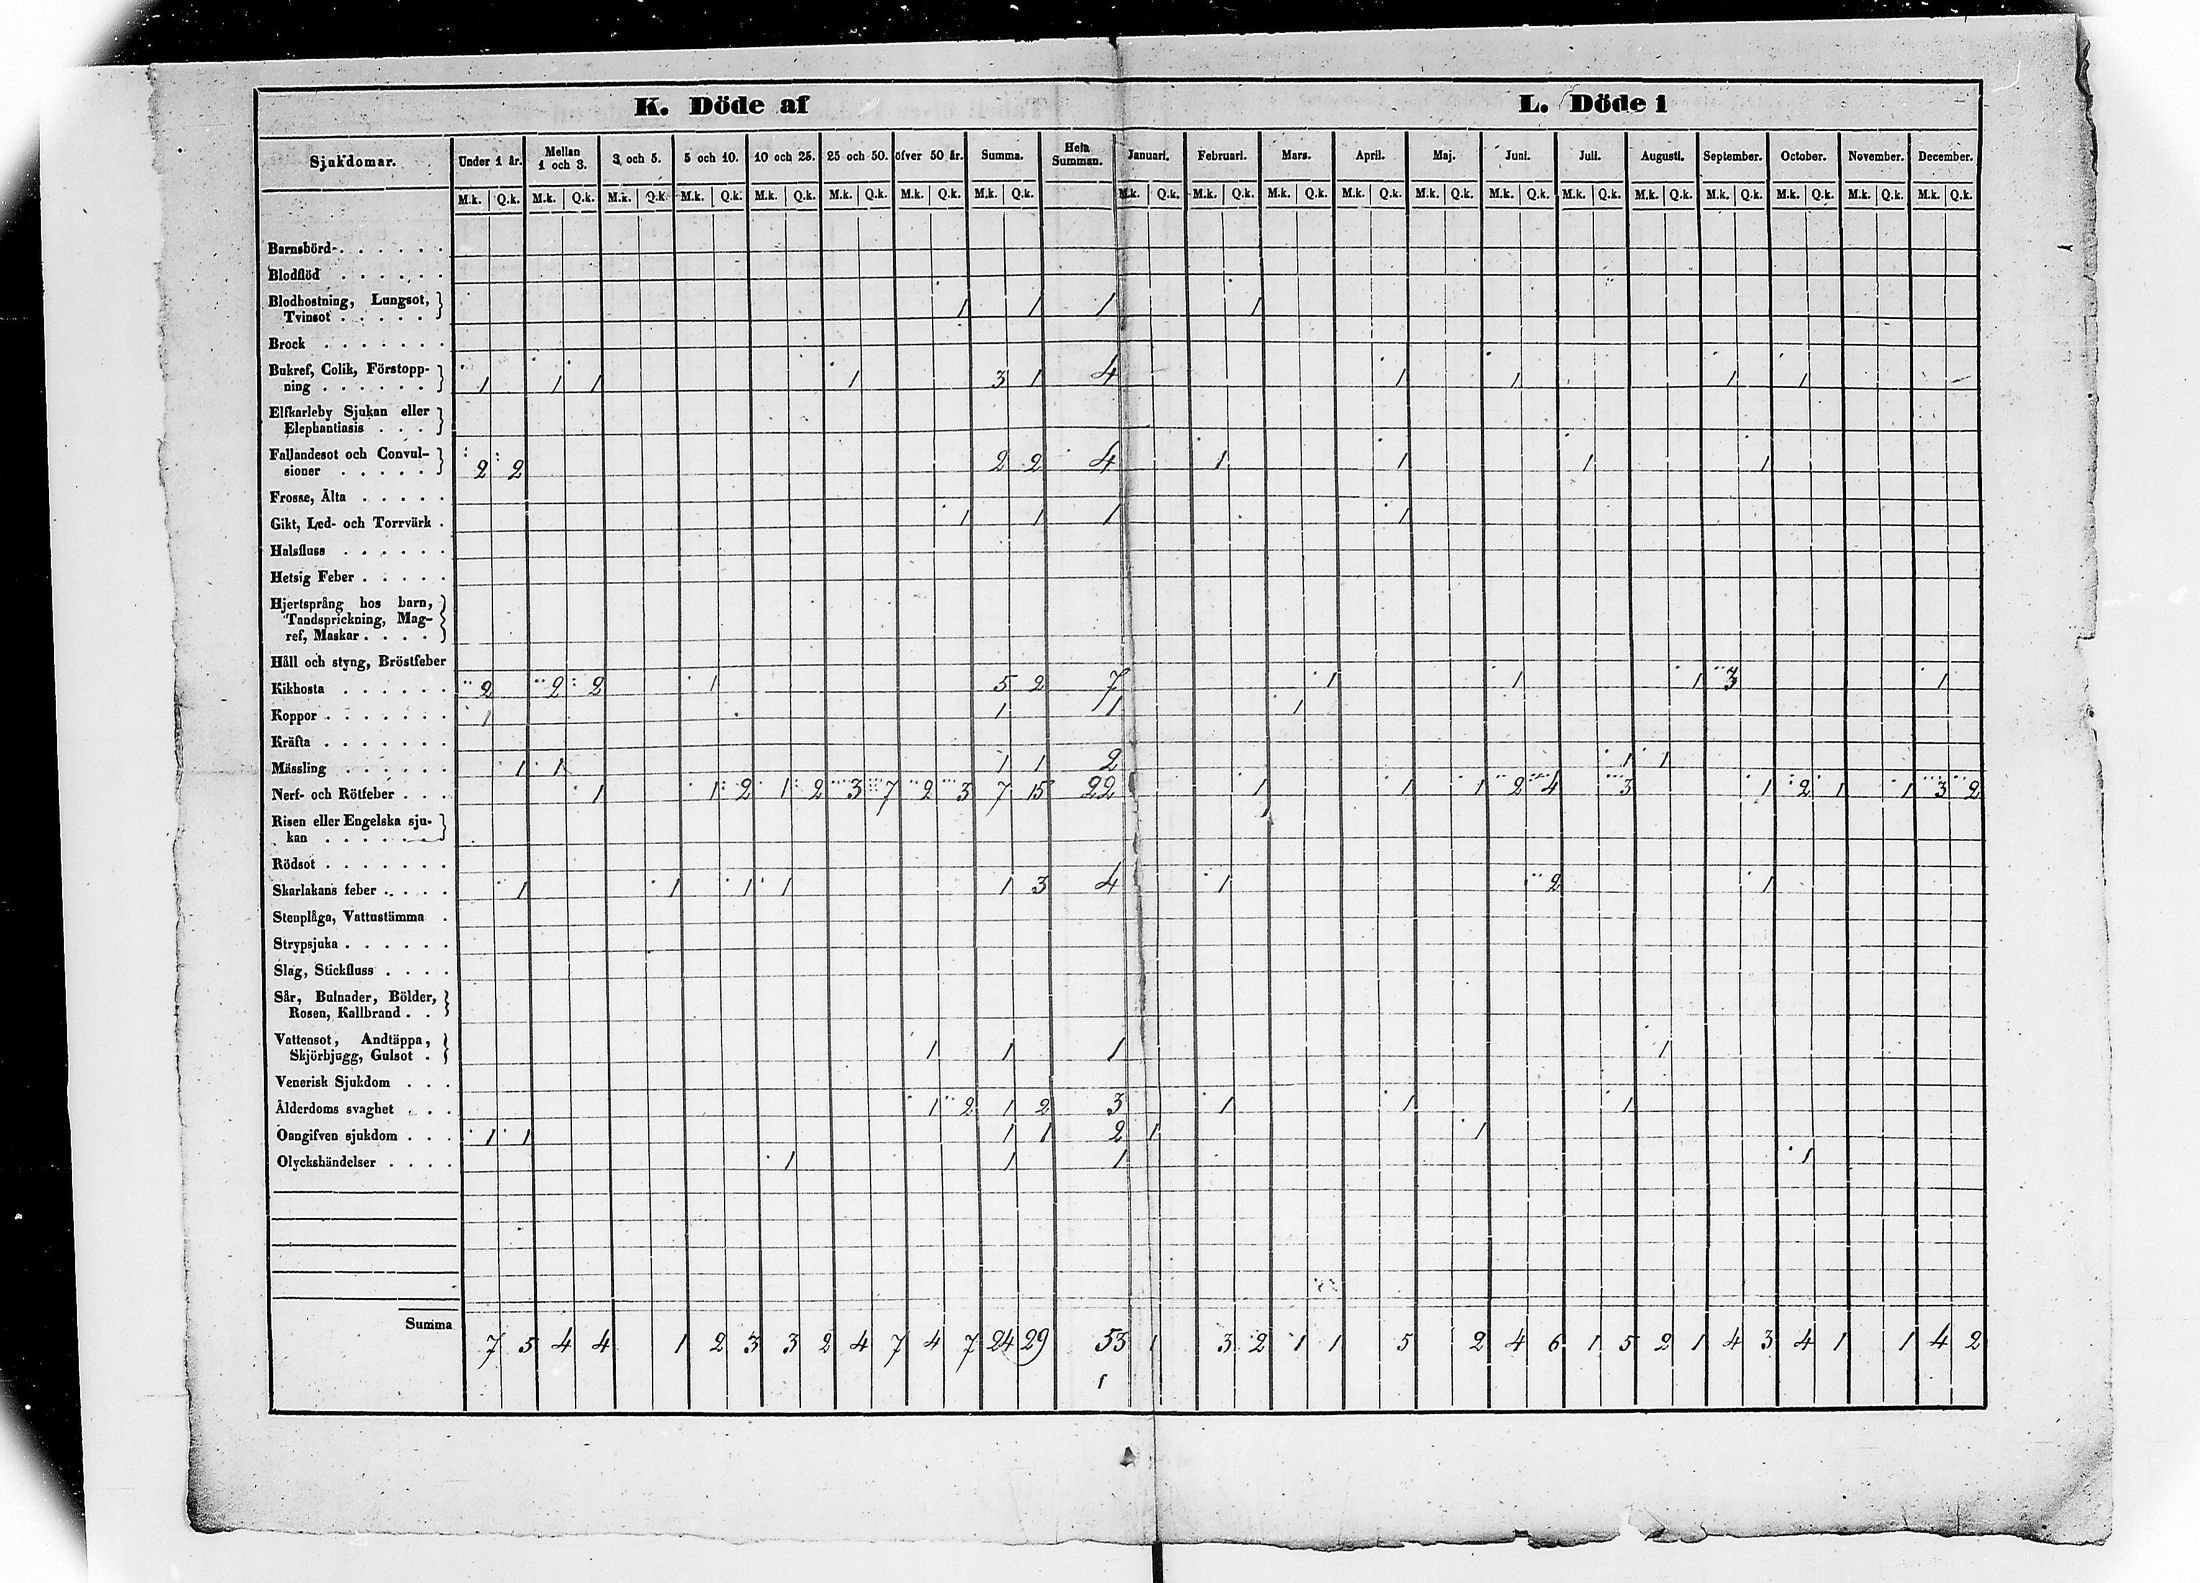 K. Döde af L. Döde i
Sjukdomar. Under 1 år. Mellan 1 och 3. 3 och 5. 5 och 10. 10 och 25. 25 och 50. öfver 50 år. Summa. Hela Summan. Januari. Februari. Mars. April. Maj. Juni. Juli. Augusti. September. October. November. December.
M.k. Q.k. M.k. Q.k. M.k. Q.k. M.k. Q.k. M.k. Q.k. M.k. Q.k. M.k. Q.k. M.k. Q.k. M.k. Q.k. M.k. Q.k. M.k. Q.k. M.k. Q.k. M.k. Q.k. M.k. Q.k. M.k. Q.k. M.k. Q.k. M.k. Q.k. M.k. Q.k. M.k. Q.k. M.k. Q.k.
Barnsbörd
Blodflöd
Blodhostning, Lungsot,
Tvinsot 1 1 1 1
Brock
Bukref, Colik, Förstopp-
ning 1 1 1 1 3 1 4 1 1 1 1
Elfkarleby Sjukan eller
Elephantiasis
Fallandesot och Convul-
sioner 2 2 2 2 4 1 1 1 1
Frosse, Älta
Gikt, Led- och Torrvärk 1 1 1 1
Halsfluss
Hetsig Feber
Hjertsprång hos barn,
Tandsprickning, Mag-
ref, Maskar
Håll och styng, Bröstfeber
Kikhosta 2 2 2 1 5 2 7 1 1 1 3 1
Koppor 1 1 1 1
Kräfta
Mässling 1 1 1 1 2 1 1
Nerf- och Rötfeber 1 1 2 1 2 3 7 2 3 7 15 22 1 1 1 2 4 3 1 2 1 1 3 2
Risen eller Engelska sju-
kan
Rödsot
Skarlakans feber 1 1 1 1 1 3 4 1 2 1
Stenplåga, Vattustämma
Strypsjuka
Slag, Stickfluss
Sår, Bulnader, Bölder,
Rosen, Kallbrand
Vattensot, Andtäppa,
Skjörbjugg, Gulsot 1 1 1 1
Venerisk Sjukdom
Ålderdoms svaghet 1 2 1 2 3 1 1 1
Oangifven sjukdom 1 1 1 1 2 1 1
Olyckshändelser 1 1 1 1
Summa 7 5 4 4 1 2 3 3 2 4 7 4 7 24 29 53 1 3 2 1 1 5 2 4 6 1 5 2 1 4 3 4 1 1 4 2